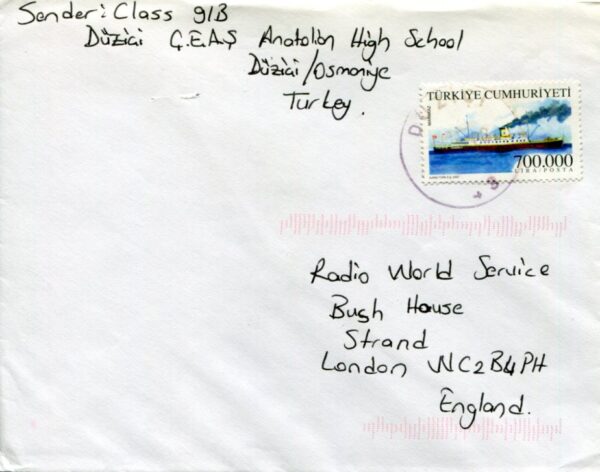 Sender: Class 9/B
Düziçi Ç.E.A.Ş Anatolian High School
Düziçi/Osmaniye
Turkey.
TÜRKİYE CUMHURİYETİ
700.000
LIRA/POSTA
Radio World Service
Bush House
Strand
London WC2B4PH
England.